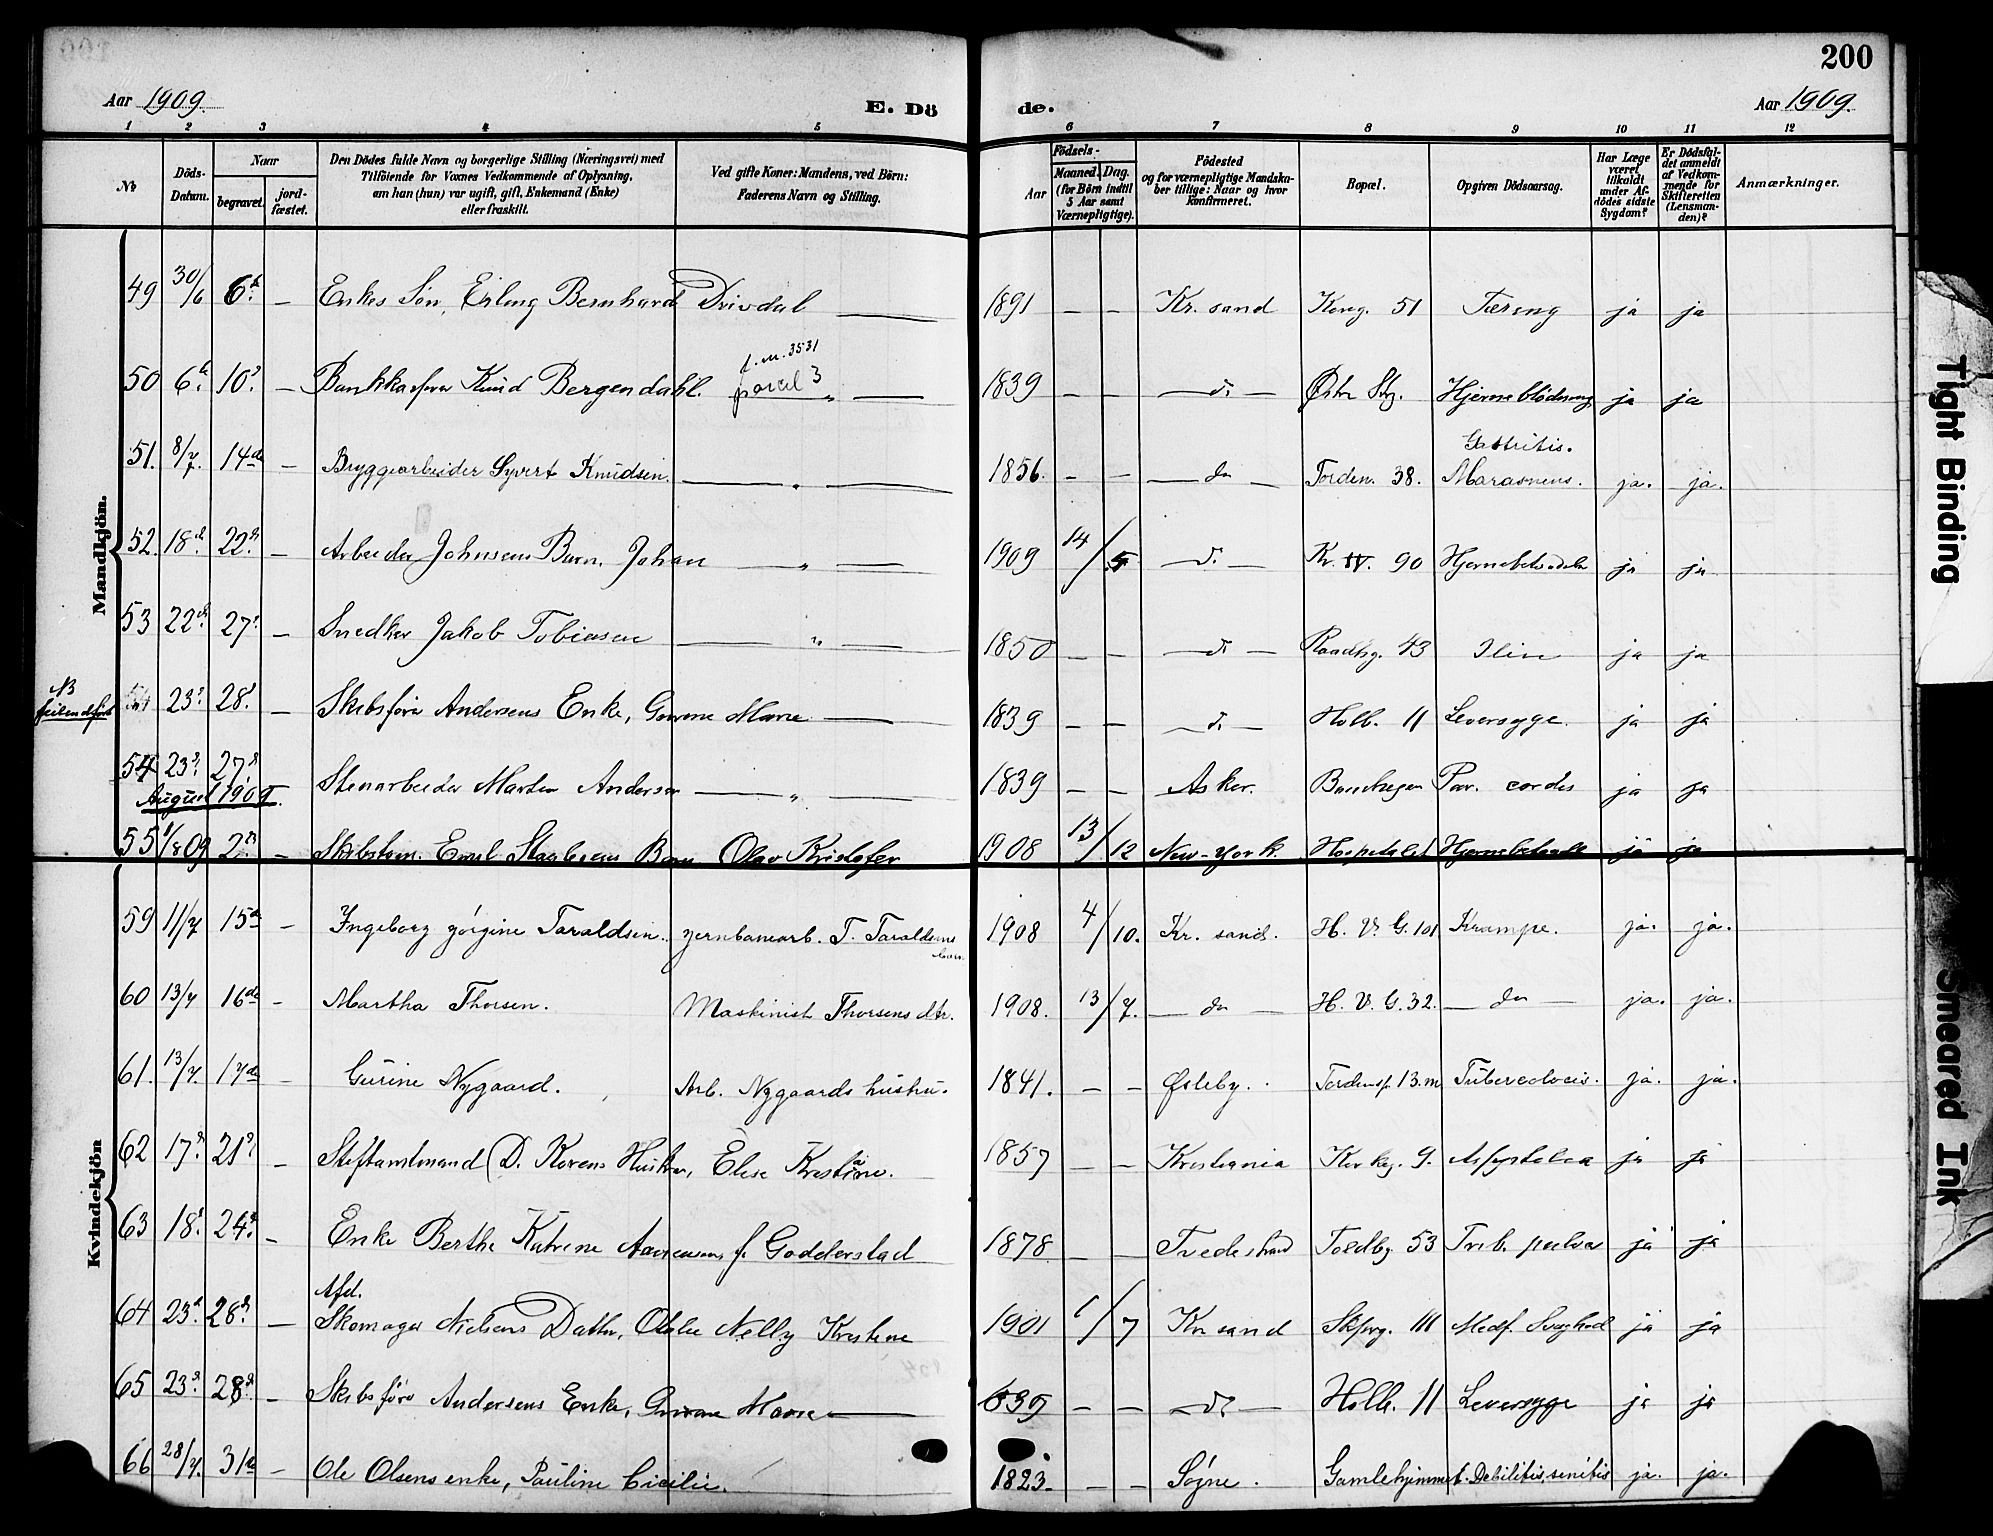 200
Aar 1909.
E. Dö
de.
Aar 1909.
1 2 3 4 5 6 7 8 9 10 11 12
No
Döds-Datum.
Naar
begravet.
jord-fæstet.
Den Dödes fulde Navn og borgerlige Stilling (Næringsvei) med
Tilföiende for Voxnes Vedkommende af Oplysning,
om han (hun) var ugift, gift, Enkemand (Enke)
eller fraskilt.
Ved gifte Koner: Mandens, ved Börn:
Faderens Navn og Stilling.
Födsels-
Aar
Maaned. Dag.
(for Börn indtil
5 Aar samt
Værnepligtige).
Födested
og for værnepligtige Mandska-
ber tillige: Naar og hvor
konfirmeret.
Bopæl.
Opgiven Dödsaarsag.
Har Læge
været
tilkaldt
under Af-
dödes sidste
Sygdom?
Er Dödsfal-
det anmeldt
af Vedkom-
mende for
Skifteretten
(Lensman-
den)?
Anmærkninger.
Mandkjön.
49 30/6 6te — Enkes Søn, Erling Bernhard Drivdal — 1891 — — Kr.sand Kong. 51 Tæring ja ja
f.m. 3531
50 6te 10d — Bankkasserer Knud Bergendahl. parcel 3 „ — 1839 — do — Østre Stg. Hjerneblödning ja ja
Gastritis.
51. 8/7. 14de — Bryggearbeider Syvert Knudsen. — „ — 1856. — — — do — Torden. 38. Marasmus. ja. ja.
52. 18d. 22d — Arbeider Johnsens Barn, Johan — „ — 1909 14/5 — do — Kr. IV. 90 ja ja
53 22d 27d. — Snedker Jakob Tobiasen — „ — 1850 — — — do — Raadhg. 43 Ilin ja ja
NB
23d 28d. — Skibsfører Andersens Enke, Marie — 1839 — — — do — Holb. 11 Leversyge. ja ja
54 23d. 27d — Stenarbeider Marten Andersen — „ — 1839 — — Asker. Par. cordis ja ja
August 1909.
55 1/8 09 2d — Skibstøm. Emil Barn Olav Kristofer 1908 13/12 New-York. Hospitalet ja ja
Kvindekjön
59 11/7 15de — Ingeborg Jörgine Taraldsen. Jernbanearb. T. Taraldsens barn 1908 4/10. Kr. sand. H. V. G. 101 Krampe. ja. ja.
60 13/7 16de — Martha Thorsen. Maskinist Thorsens dtr. 1908. 13/7. — do — H. V. G. 32. — do — ja. ja.
61. 13/7. 17de — Gurine Nygaard. Arb. Nygaards hustru. 1841. — — Øsleby. Tordensk. 13. Tuberculosis. ja. ja.
62 17d 21d — Stiftamtmand D. Korens Hustru, Elise Kristiane. 1857 — — Kristiania Kirkeg. 9. ja ja
63 18d. 24d. — Enke Berthe Katrine f. Godderstad 1878 — — Tvedestrand Toldbg. 53 Tub. pulm ja ja
Afd.
64 23d 28d. — Skomager Nielsens Datter, Nelly Kristine 1901 1/7 Kr sand Skprg. 111 Medf. Svaghed ja ja
65 23d. 28d. — Skibsfører Andersens Enke, Marie — 1839 — — — do — Holb. 11 Leversyge ja ja
66 28/7. 31te — Ole Olsens enke, Pauline Cicilie. 1823. — — Søgne. Gamlehjemmet. Debilitis senitis ja. ja.
Tight Binding
Smeared Ink